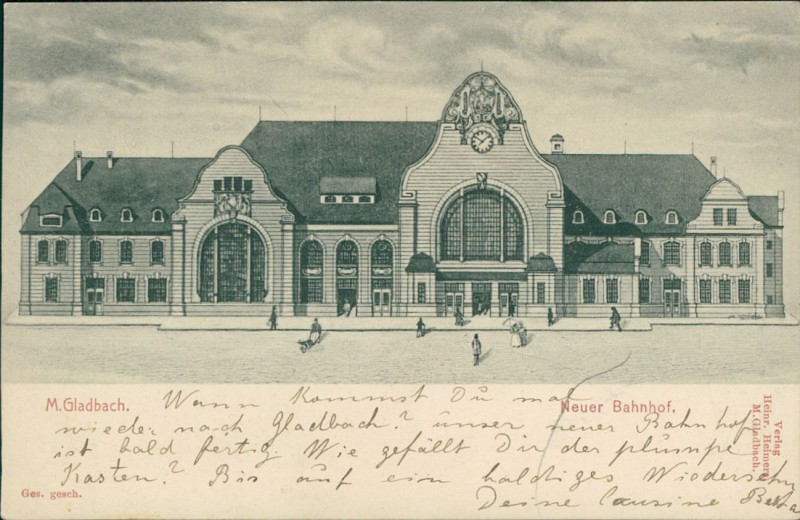 M. Gladbach.
Neuer Bahnhof.
Wann kommst Du mal
wieder nach Gladbach? unser neuer Bahnhof
ist bald fertig. Wie gefällt Dir der plumpe
Kasten? Bis auf ein baldiges Wiedersehn
Deine Cousine
Ges. gesch.
Verlag
Heinr. Heimers
M. Gladbach.